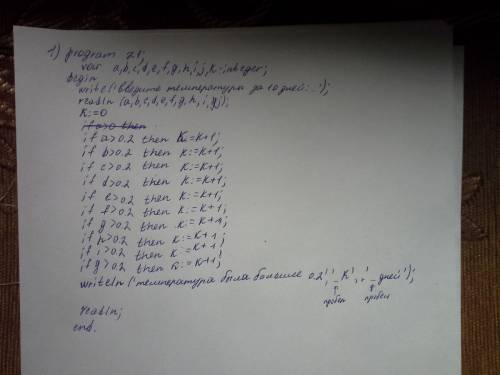 1) program z1;
var a,b,c,d,e,f,g,h,i,j,k:integer;
begin
write('введите температуры за 10 дней:..');
readln (a,b,c,d,e,f,g,h,i,gj);
K:=0
if a>0 then
if a>0.2 then K:=K+1;
if b>0.2 then K:=K+1;
if c>0.2 then K:=K+1;
if d>0.2 then K:=K+1;
if e>0.2 then K:=K+1;
if f>0.2 then K:=K+1;
if g>0.2 then K:=K+1;
if h>0.2 then K:=K+1;
if i>0.2 then K:=K+1;
if g>0.2 then K:=K+1;
writeln ('температура была больше 0.2', K, дней');
пробел пробел
readln;
end.